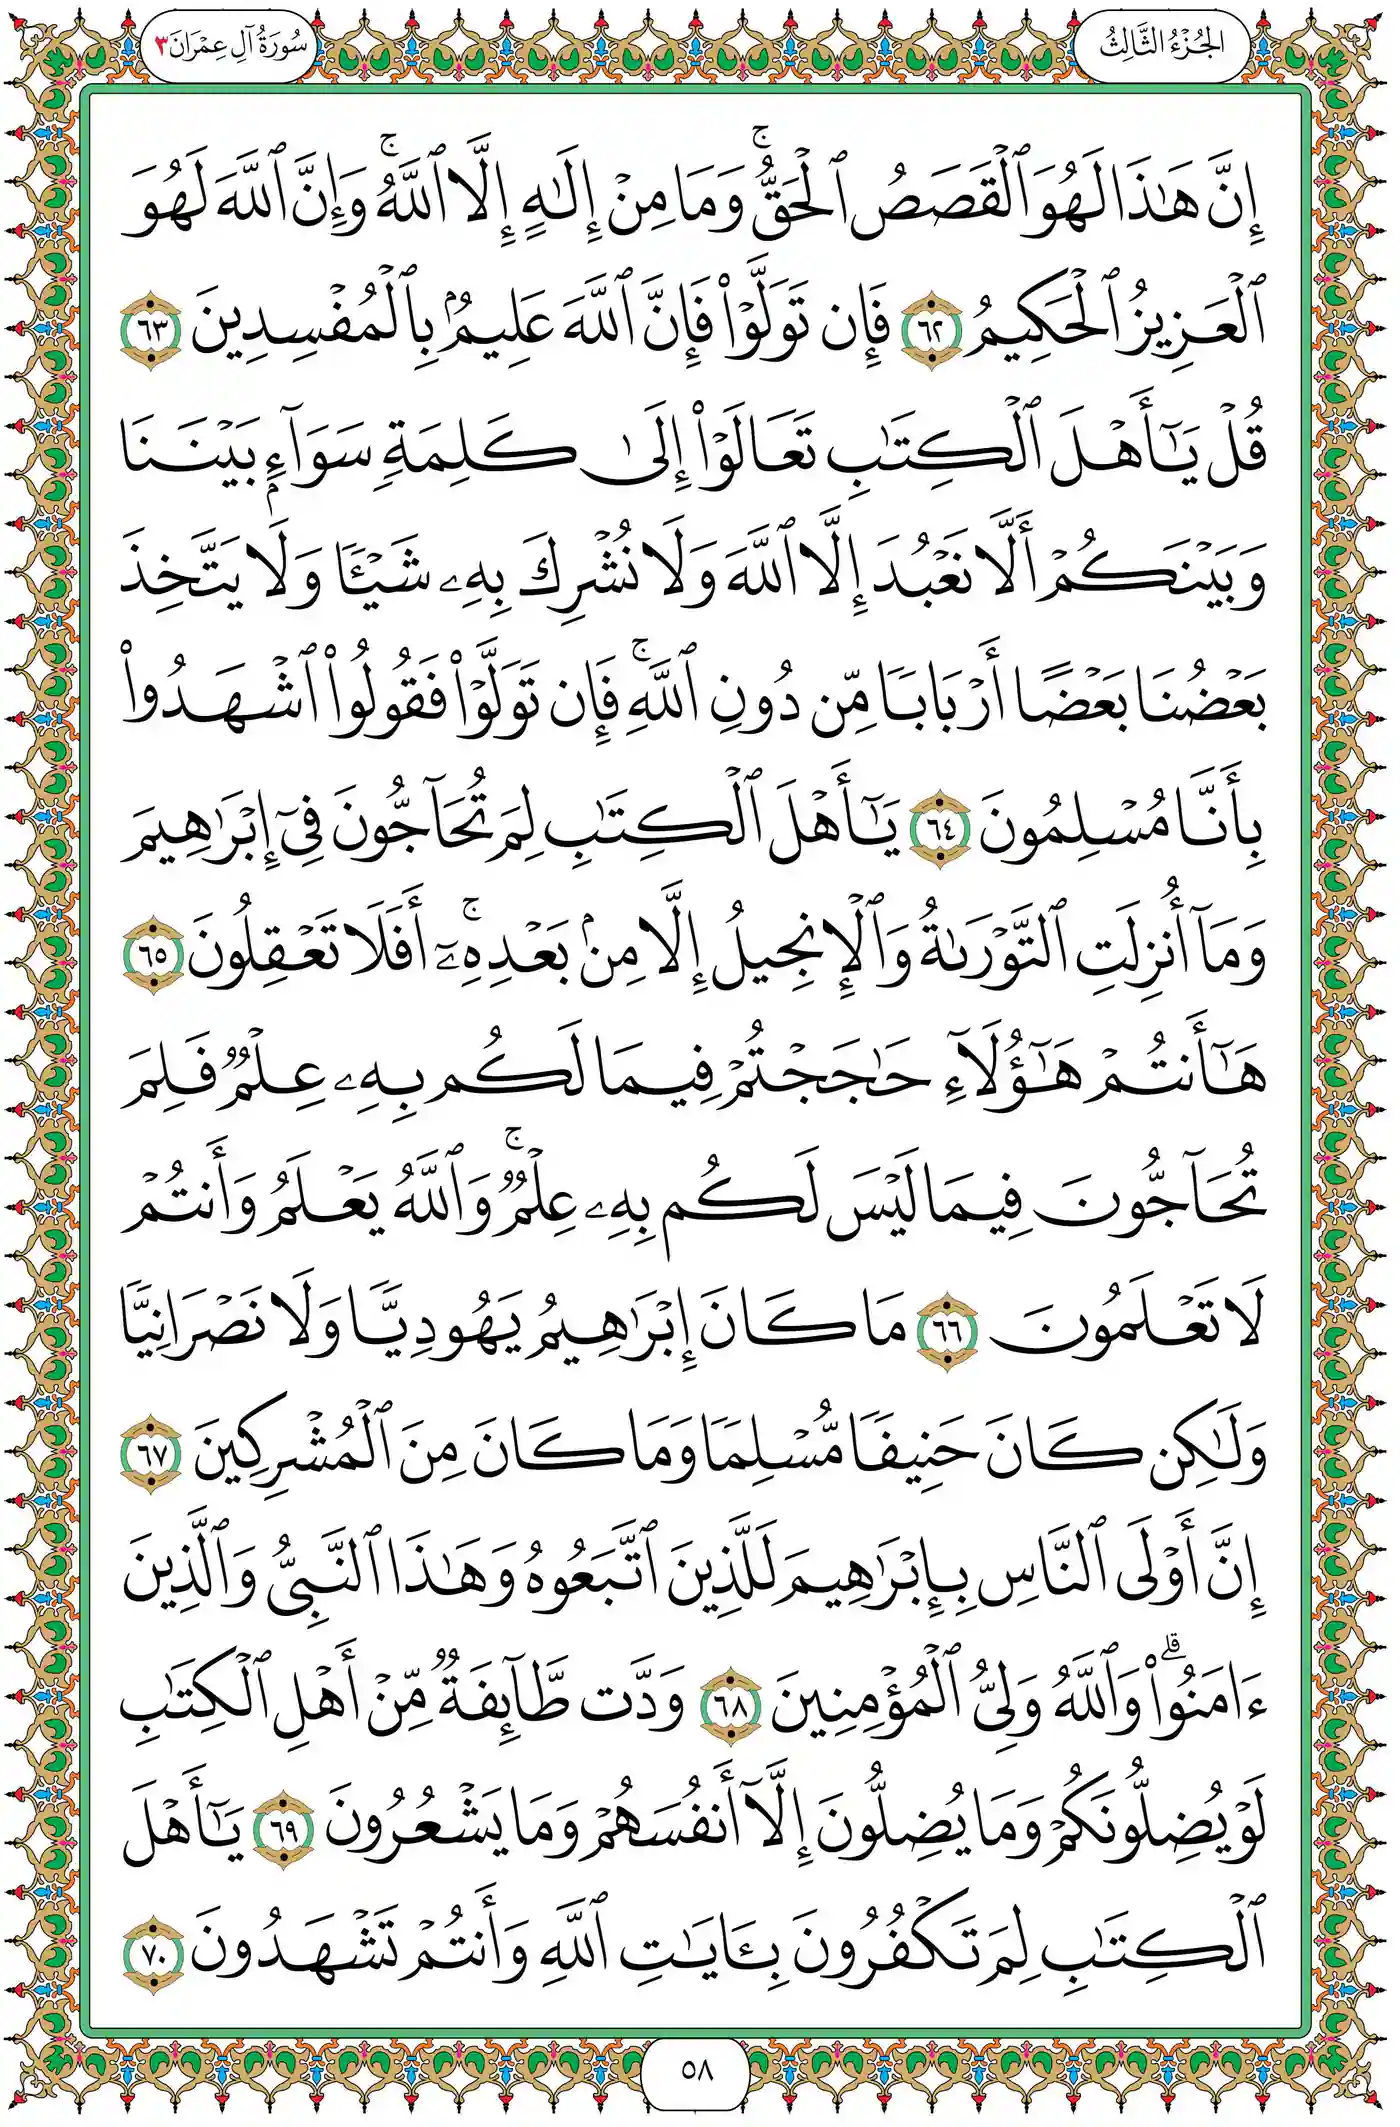 الجُزْءُ الثَّالِثُ
سُورَةُ آلِ عِمْرَانَ ٣
إِنَّ هَٰذَا لَهُوَ ٱلْقَصَصُ ٱلْحَقُّ ۚ وَمَا مِنْ إِلَٰهٍ إِلَّا ٱللَّهُ ۚ وَإِنَّ ٱللَّهَ لَهُوَ
ٱلْعَزِيزُ ٱلْحَكِيمُ ٦٢ فَإِن تَوَلَّوْا۟ فَإِنَّ ٱللَّهَ عَلِيمٌۢ بِٱلْمُفْسِدِينَ ٦٣
قُلْ يَٰٓأَهْلَ ٱلْكِتَٰبِ تَعَالَوْا۟ إِلَىٰ كَلِمَةٍ سَوَآءٍۭ بَيْنَنَا
وَبَيْنَكُمْ أَلَّا نَعْبُدَ إِلَّا ٱللَّهَ وَلَا نُشْرِكَ بِهِۦ شَيْـًٔا وَلَا يَتَّخِذَ
بَعْضُنَا بَعْضًا أَرْبَابًا مِّن دُونِ ٱللَّهِ ۚ فَإِن تَوَلَّوْا۟ فَقُولُوا۟ ٱشْهَدُوا۟
بِأَنَّا مُسْلِمُونَ ٦٤ يَٰٓأَهْلَ ٱلْكِتَٰبِ لِمَ تُحَآجُّونَ فِىٓ إِبْرَٰهِيمَ
وَمَآ أُنزِلَتِ ٱلتَّوْرَىٰةُ وَٱلْإِنجِيلُ إِلَّا مِنۢ بَعْدِهِۦٓ ۚ أَفَلَا تَعْقِلُونَ ٦٥
هَٰٓأَنتُمْ هَٰٓؤُلَآءِ حَٰجَجْتُمْ فِيمَا لَكُم بِهِۦ عِلْمٌ فَلِمَ
تُحَآجُّونَ فِيمَا لَيْسَ لَكُم بِهِۦ عِلْمٌ ۚ وَٱللَّهُ يَعْلَمُ وَأَنتُمْ
لَا تَعْلَمُونَ ٦٦ مَا كَانَ إِبْرَٰهِيمُ يَهُودِيًّا وَلَا نَصْرَانِيًّا
وَلَٰكِن كَانَ حَنِيفًا مُّسْلِمًا وَمَا كَانَ مِنَ ٱلْمُشْرِكِينَ ٦٧
إِنَّ أَوْلَى ٱلنَّاسِ بِإِبْرَٰهِيمَ لَلَّذِينَ ٱتَّبَعُوهُ وَهَٰذَا ٱلنَّبِىُّ وَٱلَّذِينَ
ءَامَنُوا۟ ۗ وَٱللَّهُ وَلِىُّ ٱلْمُؤْمِنِينَ ٦٨ وَدَّت طَّآئِفَةٌ مِّنْ أَهْلِ ٱلْكِتَٰبِ
لَوْ يُضِلُّونَكُمْ وَمَا يُضِلُّونَ إِلَّآ أَنفُسَهُمْ وَمَا يَشْعُرُونَ ٦٩ يَٰٓأَهْلَ
ٱلْكِتَٰبِ لِمَ تَكْفُرُونَ بِـَٔايَٰتِ ٱللَّهِ وَأَنتُمْ تَشْهَدُونَ ٧٠
٥٨